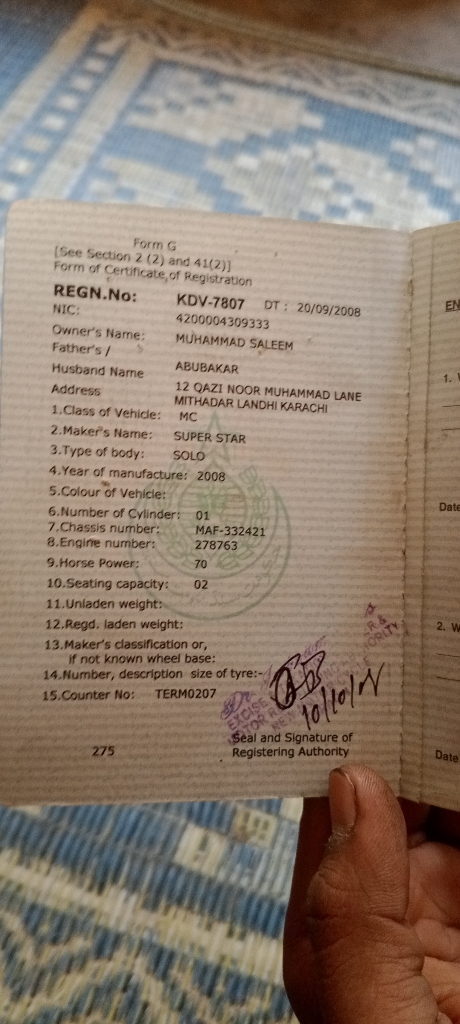 Form G
[See Section 2 (2) and 41(2)]
Form of Certificate of Registration
REGN.No: KDV-7807 DT : 20/09/2008
NIC: 4200004309333
Owner's Name: MUHAMMAD SALEEM
Father's /
Husband Name ABUBAKAR
Address 12 QAZI NOOR MUHAMMAD LANE
MITHADAR LANDHI KARACHI
1.Class of Vehicle: MC
2.Maker's Name: SUPER STAR
3.Type of body: SOLO
4.Year of manufacture: 2008
5.Colour of Vehicle:
6.Number of Cylinder: 01
7.Chassis number: MAF-332421
8.Engine number: 278763
9.Horse Power: 70
10.Seating capacity: 02
11.Unladen weight:
12.Regd. laden weight:
13.Maker's classification or,
if not known wheel base:
14.Number, description size of tyre:-
15.Counter No: TERM0207
EXCISE
Seal and Signature of
Registering Authority
275
EN
1.
Date
2. W
Date